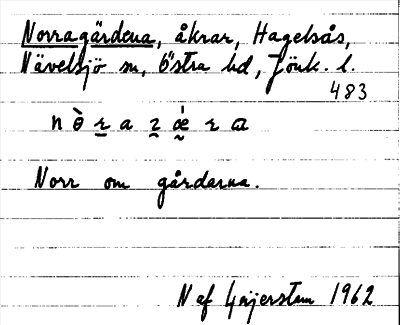 Norragärdena, åkrar, Hagelsås,
Nävelsjö sn, Östra hd, Jönk. l.
483
Norr om gårdarna.
N af 1962